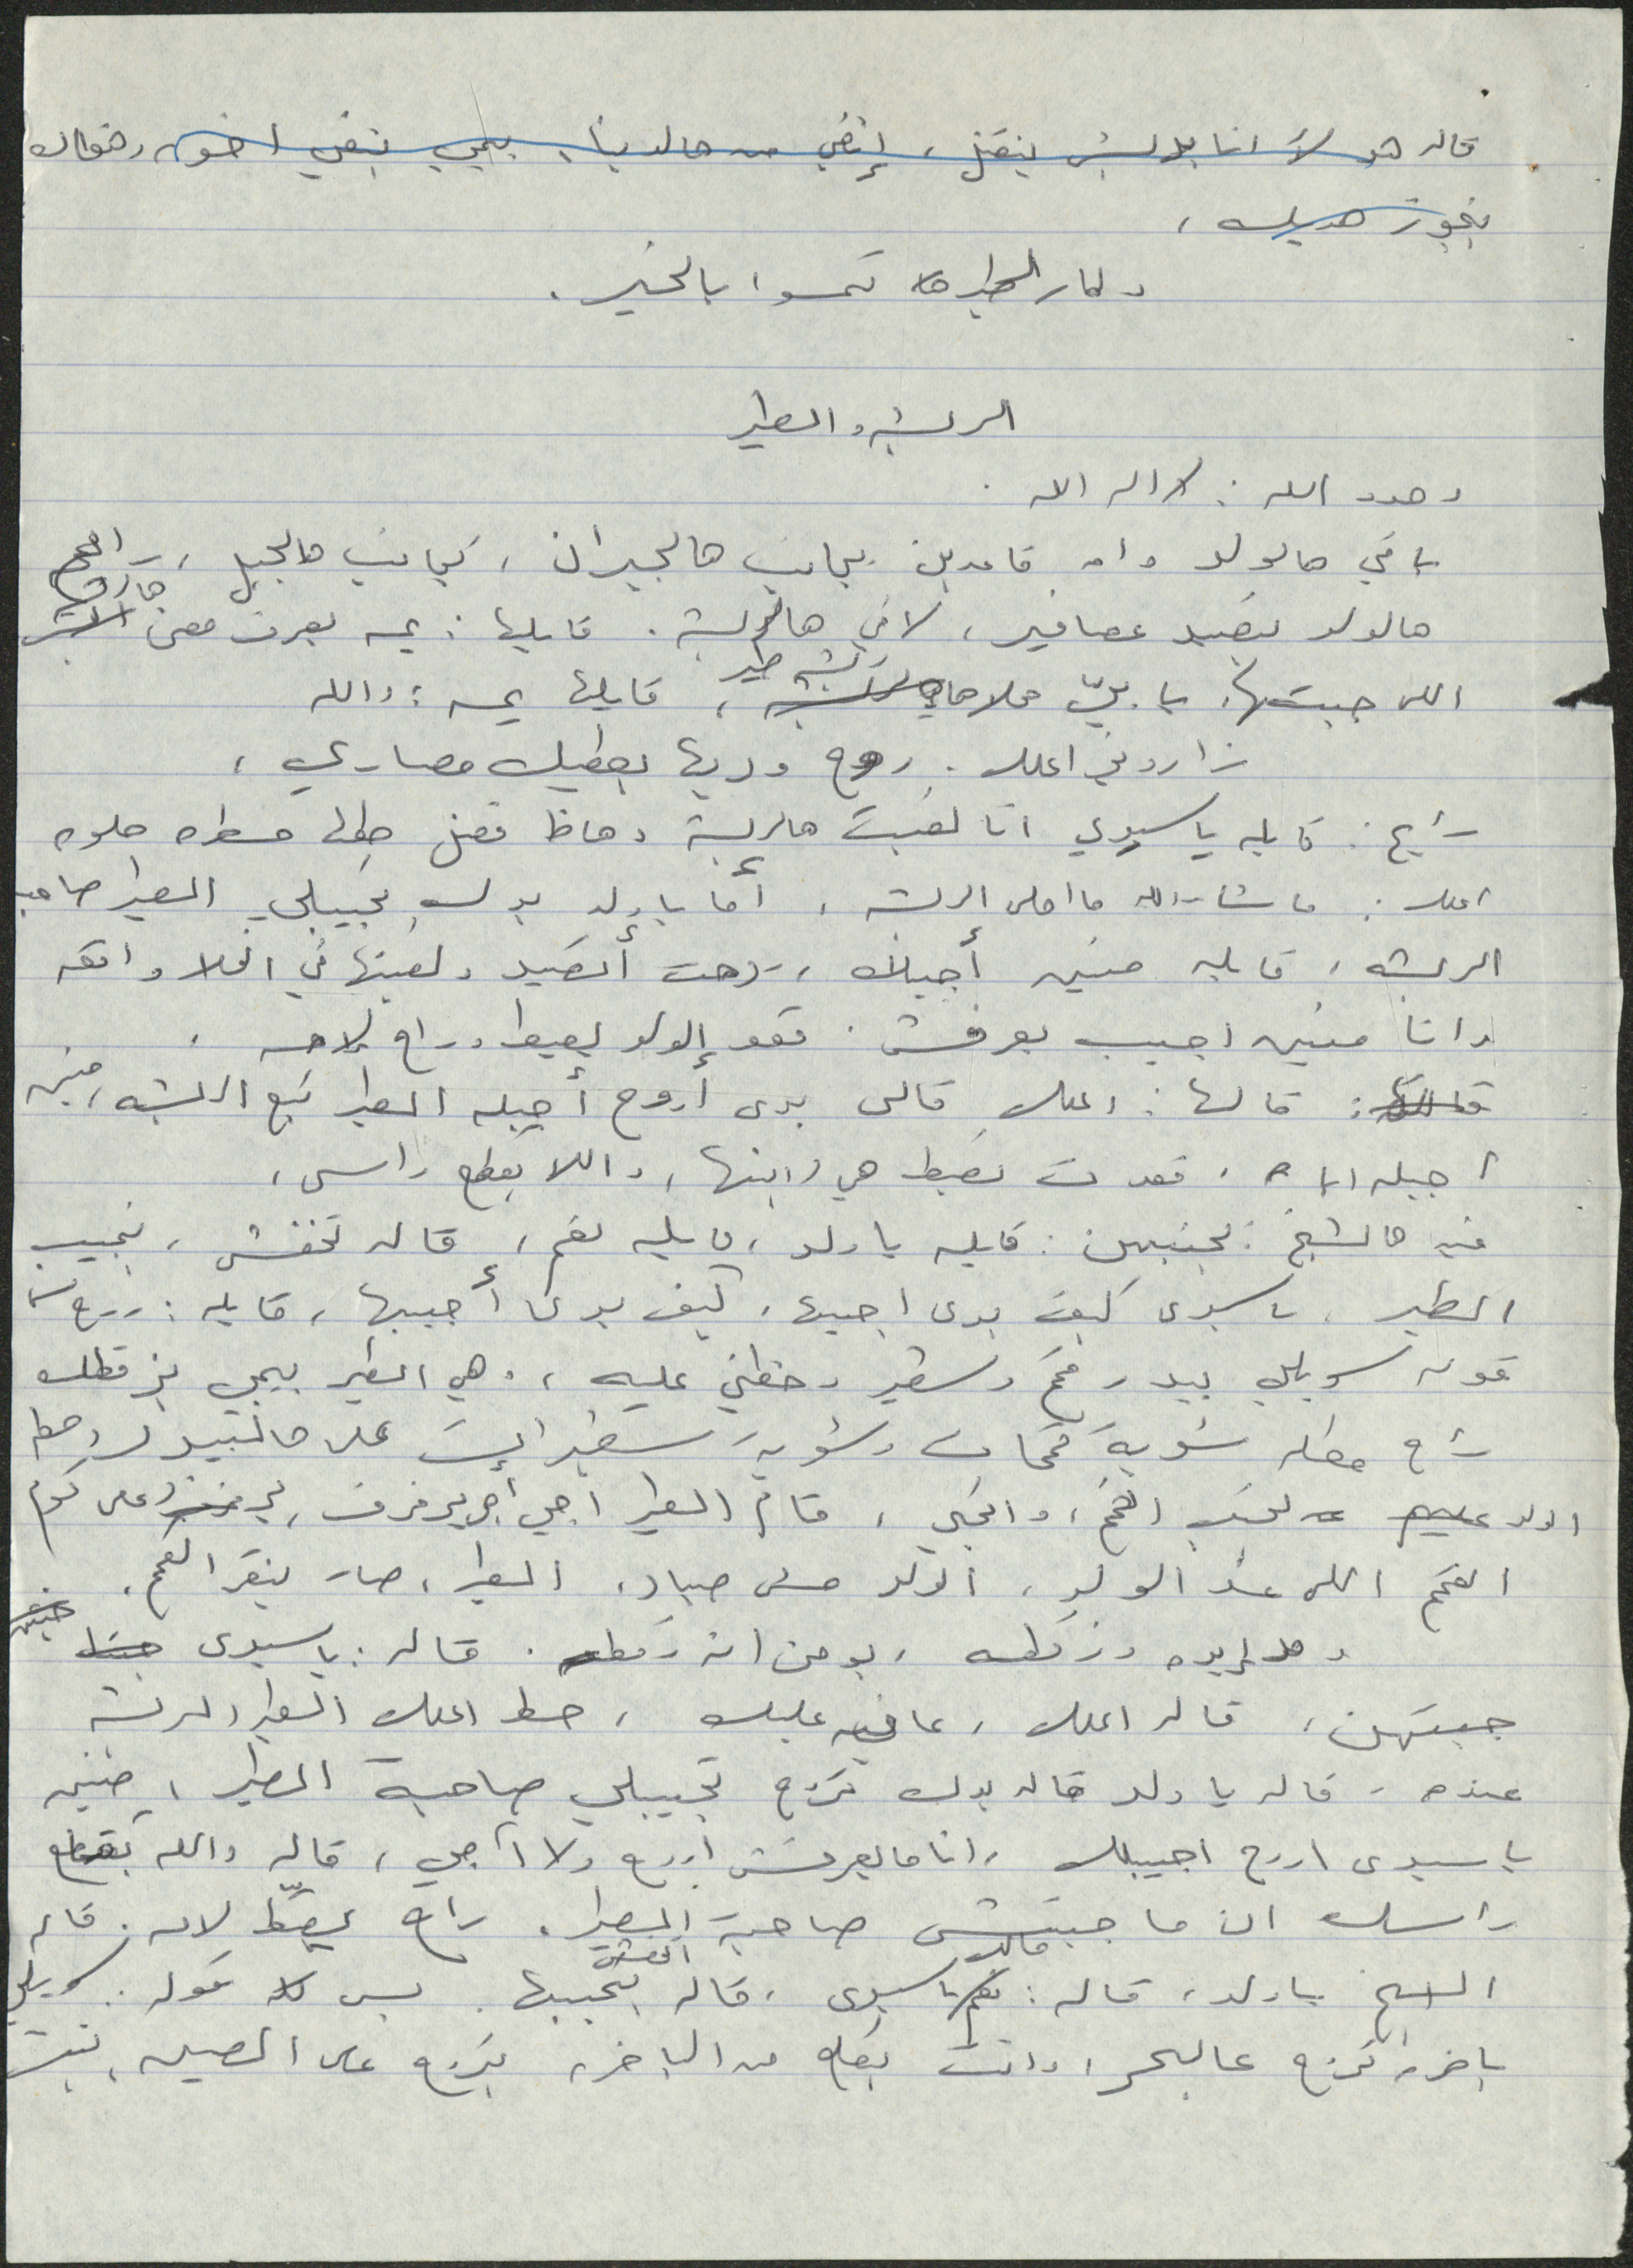 قاله هو لا انا بديش ينقتل، إنفي من هالدنيا. بيجي بنفي اخوه رضوان
بنجوز هديك،
وطار الطير تتمسوا بالخير.
الريشه والطير
وحدوا الله: لا اله الا الله.
يا في هالولد وامه قاعدين بجانب هالجيران، بجانب هالجبل، رايح
هالولد يصيد عصافير، لاقى هالريشة. قايلها: يمه بعرف معن هالريشة
اللي جبتها، يا بيّ محلا هاي ريشة طير، قايلها يمه: والله
زاروني الملك. روح وريها بعطيك مصاري،
رايح: قايله يا سيدي انا لقيت هالريشة وهاظا فضل حطها منظره حلوه
الملك: ما شاء الله ما احلى الريشه، أما يا ولد بدك تجيبلي الطير صاحب
الريشه، قايله منين أجيبلك، رحت أتصيد ولقيتها في الخلا واقعه
وانا منين اجيب بعرفش. قعد إلولد يعيط وراح لامه،
قالها: الملك قالي بدي أروح أجيبله الطير تبع الريشه، منين
أجيبله اياه، قعدت تعيط هي وابنها، والا بقطع راسي،
فيه هالشيخ بجنبهن: قايله يا ولد، قايله نعم، قاله تخفش، بنجيب
الطير. يا سيدي كيف بدي اجيبها، كيف بدي أجيبها، قايله: روح
قوله سويلي بيدر قمح وشعير وحطني عليه، وهي الطير بيجي بزقطلك
راح حطله شوية قمحات وشوية شعيرات على هالبيدر وحط
الولد بجنب القمح، والجبي، قام الطير اجى يرفرف، يرفرف على كوم
القمح اللي عند الولد، الولد مش صياد، الطير، صار ينقر القمح،
ومد إيده وزقطه، يومن انه زقطه. قاله: يا سيدي
جبتهن، قاله الملك، عافيه عليك، حط الملك الطير والريشة
عنده، قاله يا ولد قاله بدك تروح تجيبلي صاحبة الطير، منين
يا سيدي اروح اجيبلك، وانا ما بعرفش اروح ولا آجي، قاله والله بقطع
راسك ان ما جبتش صاحبة الطير. راح يعيّط لامه. قاله
الشيخ يا ولد، قاله: نعم يا سيدي، قاله تخفش بنجيبها. بس قوله: سويلي
باخره تروح عالبحر، وانت بتطلع من الباخره بتروح على الصين، بنت